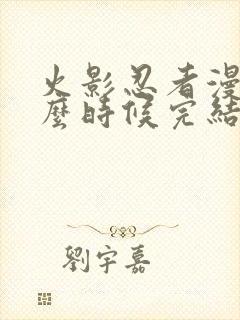 火影忍者漫
麼時候完結
劉宇嘉